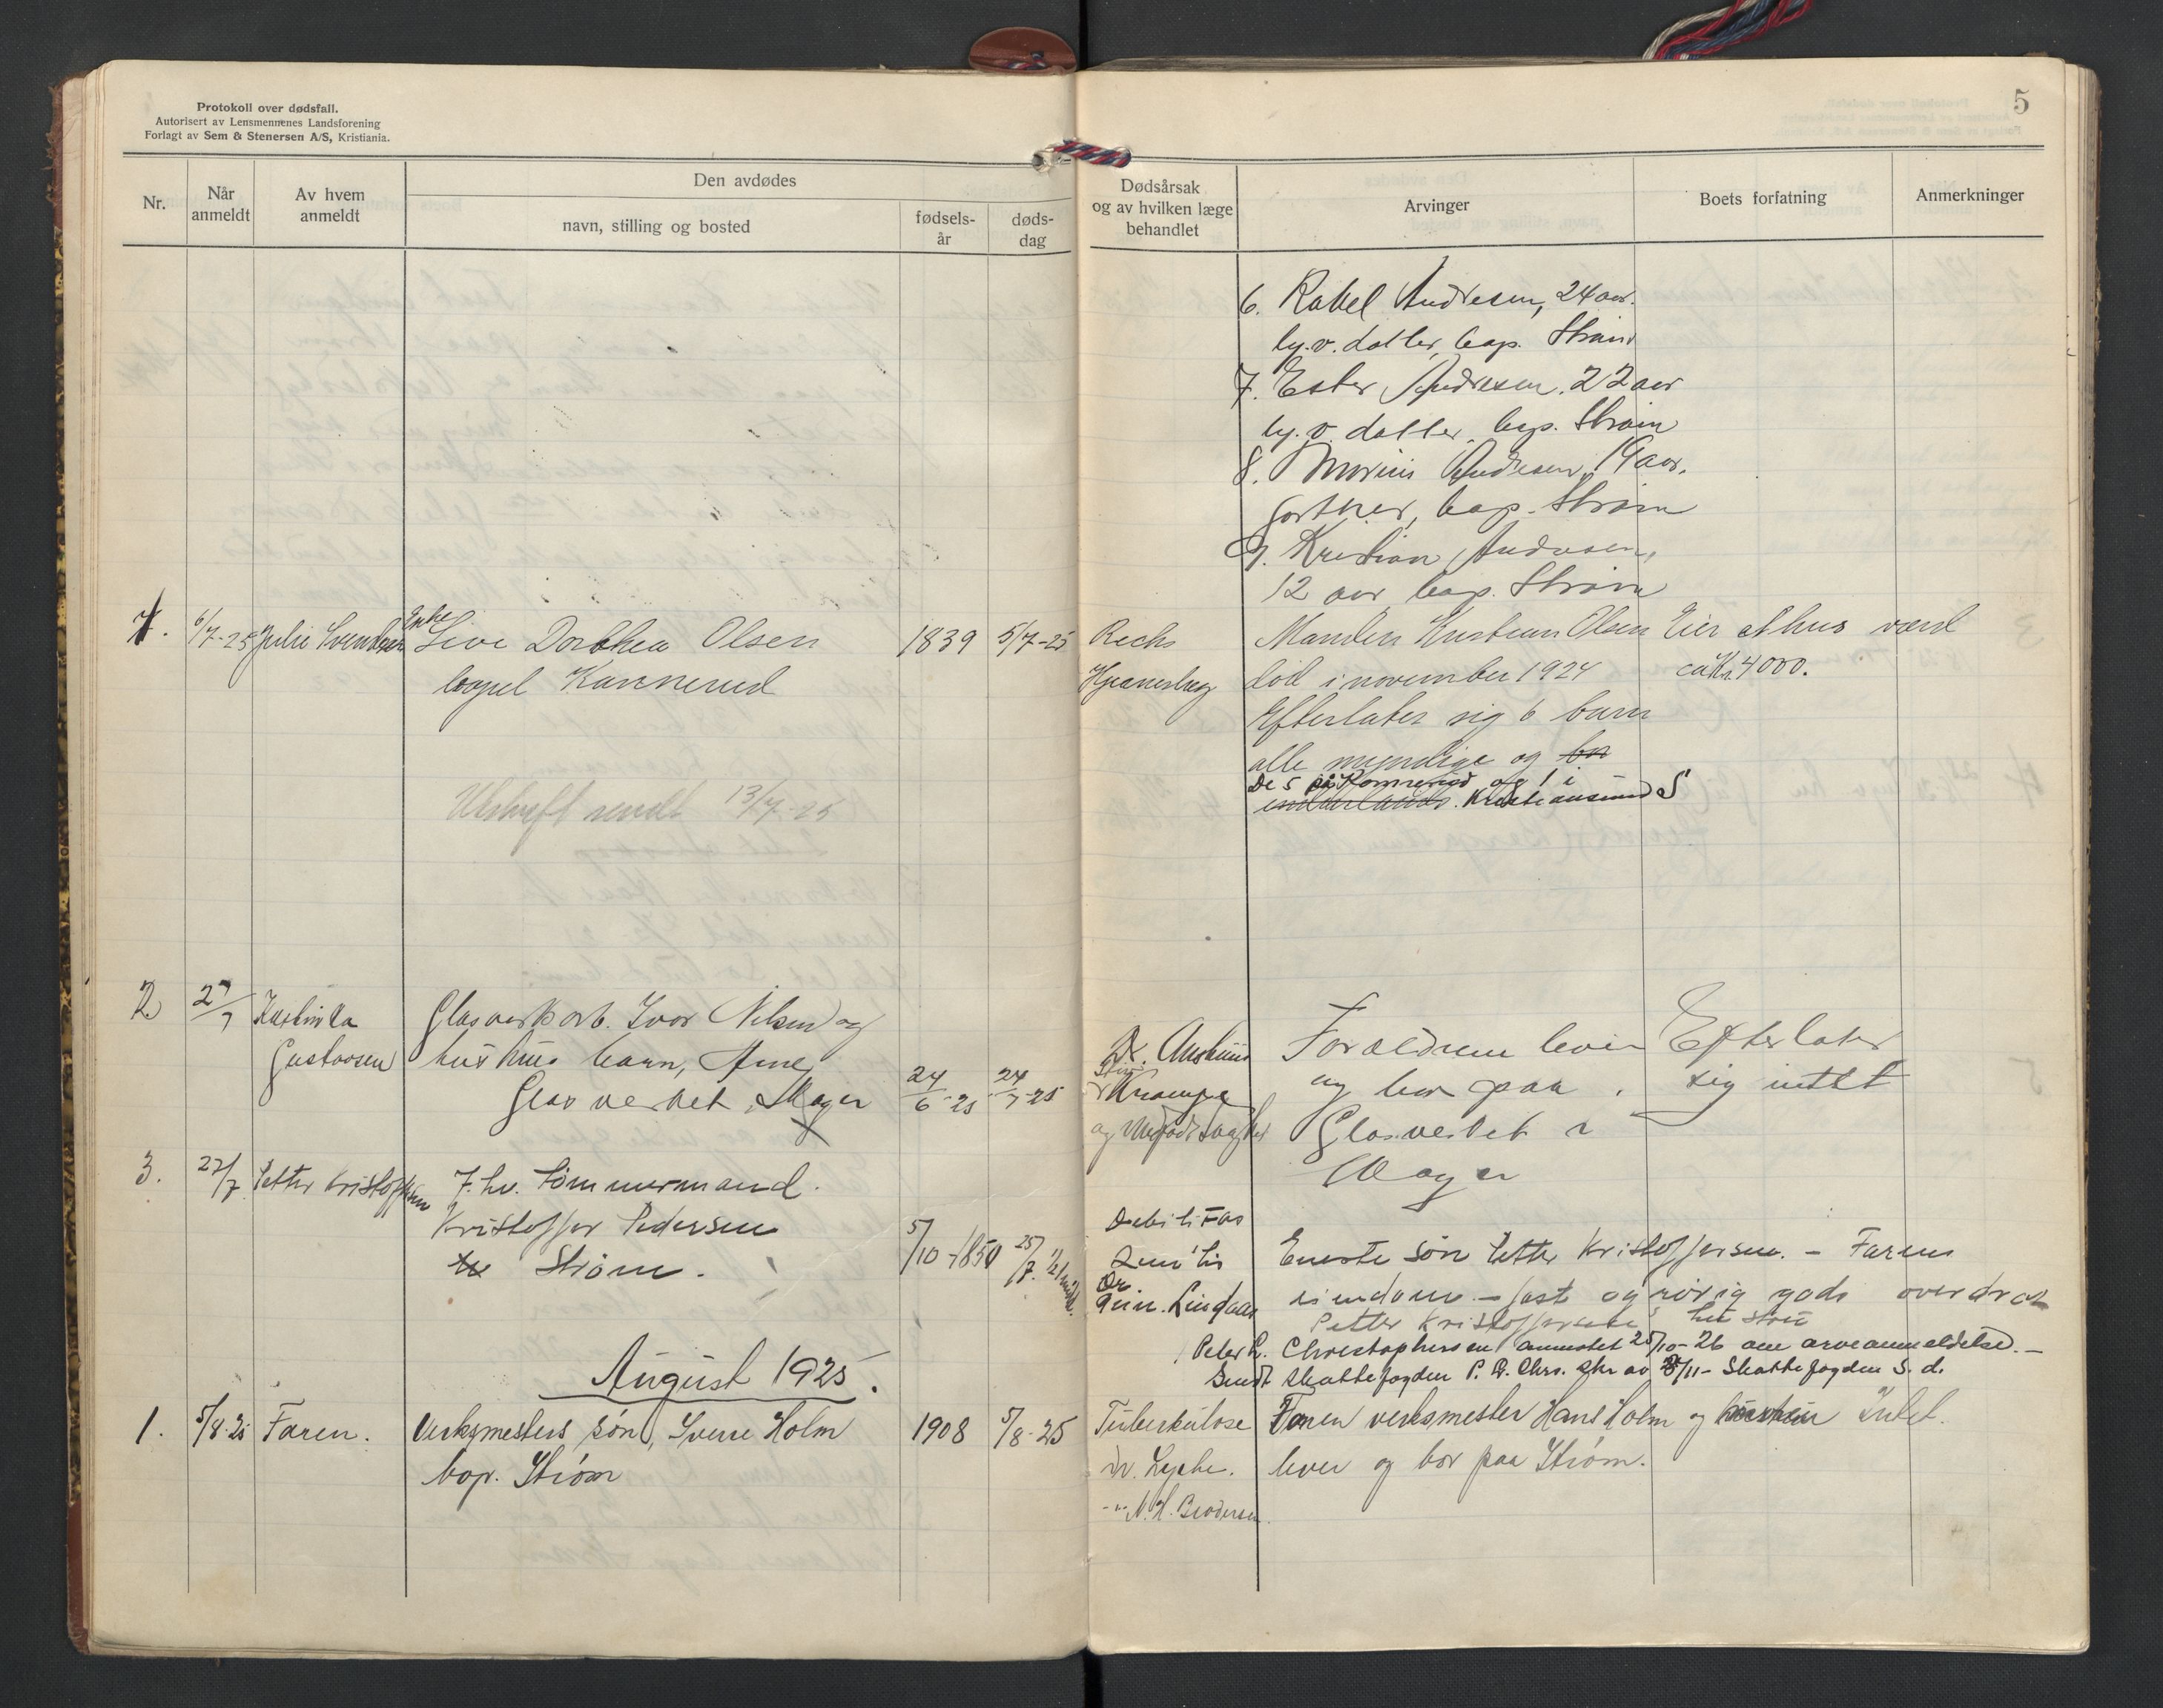 Protokoll over dødsfall.
Autorisert av Lensmennenes Landsforening
Forlagt av Sem & Stenersen A/S, Kristiania.
5
Nr.
Når
anmeldt
Av hvem
anmeldt
Den avdødes
navn, stilling og bosted
fødsels-
år
døds-
dag
Dødsårsak
og av hvilken læge
behandlet
Arvinger
Boets forfatning
Anmerkninger
6. Rakel Andresen, 24 aar.
ty. v. datter, bop. Strøm
7. Ester Andresen. 22 aar
ty. v. datter, bop. Strøm
8. Andresen, 19 aar.
gartner, bop. Strøm
9. Kristian Andresen,
12 aar bop. Strøm
1. 6/7-25 Julie Svendsen
Enke
Live Dorthea Olsen
bopæl Kannerud
1839 5/7-25
Manden Kristian Olsen
død i november 1924
Efterlater sig 6 barn
alle myndige og
De 5 på Konnerud og 1 i
Kristiansund S
Eier et hus værd
ca Kr. 4000.
Utskrift sendt 13/7-25
2. 27/7
Gustavsen
Glasverksarb. Ivar Nilsen og
hustrus barn, Arne
Glasverket, Mager
24/6-25 24/7-25
Dr.
Krampe
og
Forældrene lever
og bor paa
Glasverket
Efterlater
sig intet
3. 27/7 Petter Kristoffersen
F. hv. tømmermand.
Kristoffer Pedersen
Strøm.
5/10-1850 25/7.
Debilitas
Senilis
Dr
Lindaas
Eneste søn Petter Kristoffersen. - Farens
eiendom - fast og rørig gods overdrat
Petter Kristoffersen
Peter L. Christophersen anmodet 25/10-26 om arveanmeldelse. -
Sendt skattefogden P. L. Chrs. skr av 8/11 - Skattefogden S. d.
August 1925.
1. 5/8-25 Faren.
Verksmesters søn, Sverre Holm
bop. Strøm
1908 5/8-25
Tuberkulose
Dr. Lyche.
-"- N. H. Brodersen.
Faren verksmester Hans Holm og hustru
lever og bor paa Strøm.
Intet.